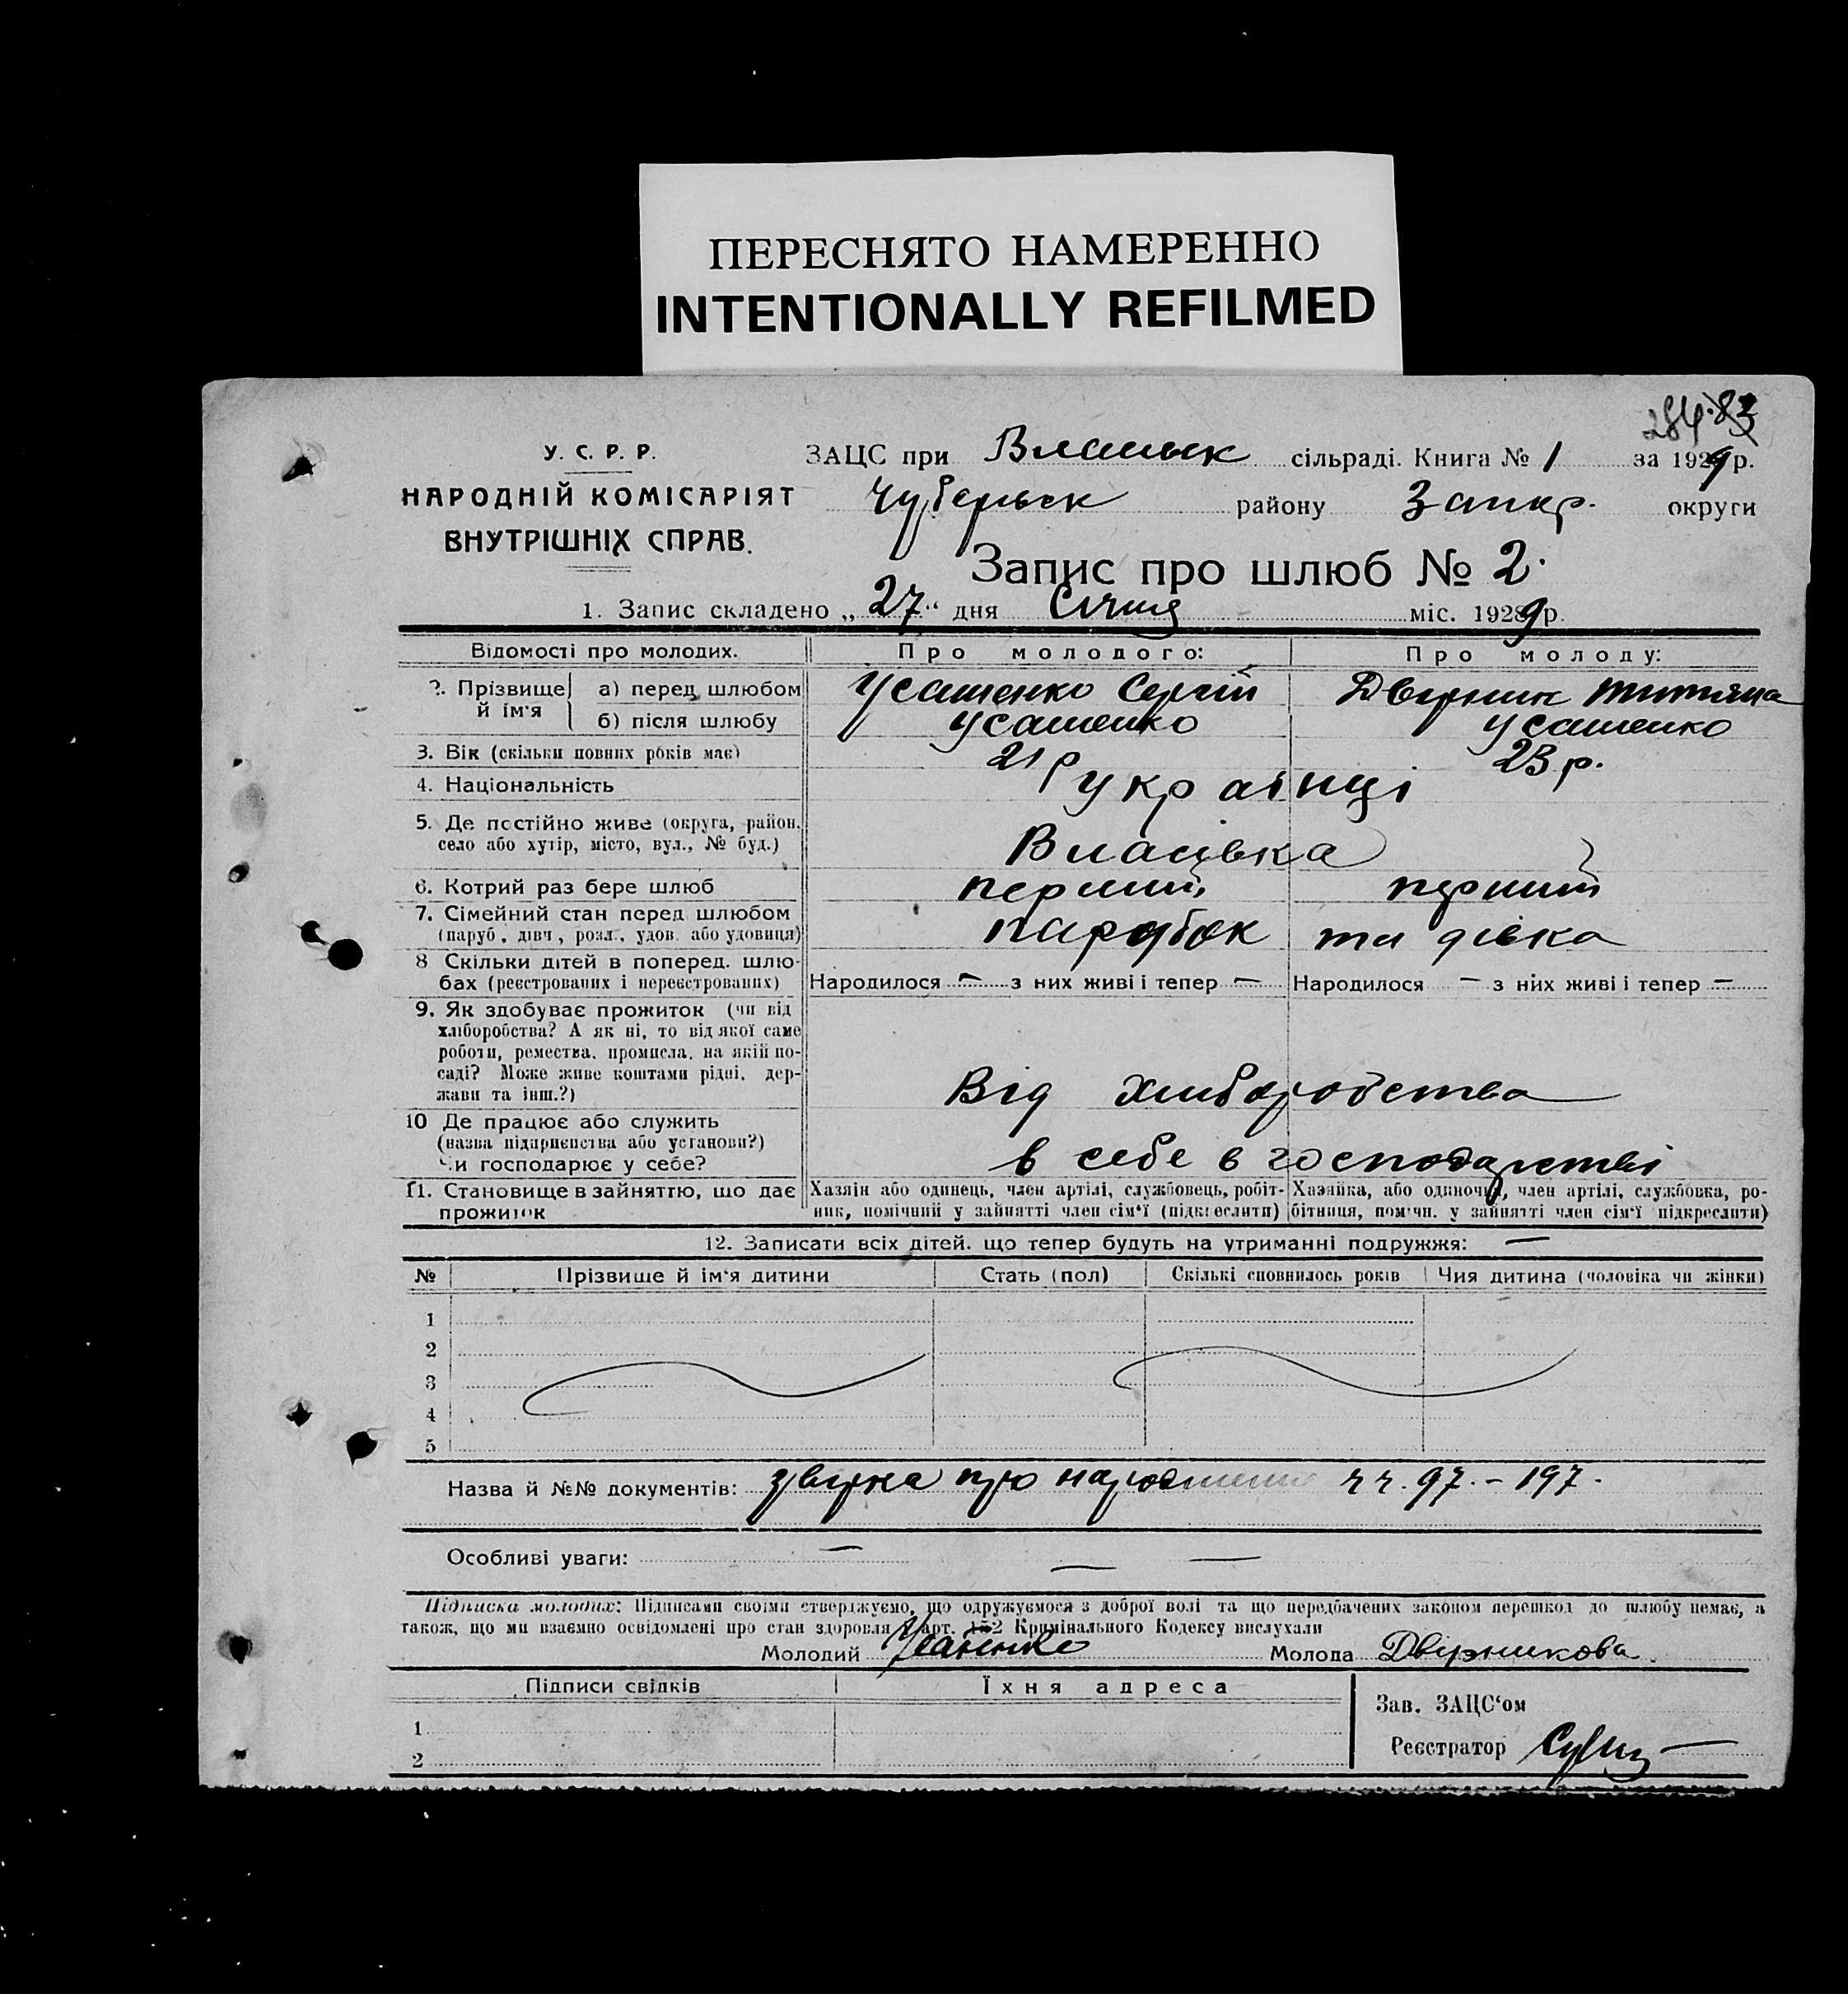 ПЕРЕСНЯТО НАМЕРЕННО
INTENTIONALLY REFILMED
284 83
У. С. Р. Р.
НАРОДНІЙ КОМІСАРІЯТ
ВНУТРІШНІХ СПРАВ.
ЗАЦС при сільраді. Книга № 1 за 1929 р.
району Запор. округи
Запис про шлюб № 2.
1. Запис складено „27“ дня Січня міс. 1929 р.
Відомості про молодих. Про молодого: Про молоду:
2. Прізвище й ім'я а) перед шлюбом Усатенко Сергій Двірник Титяна
б) після шлюбу Усатенко Усатенко
3. Вік (скільки повних років має) 21 р 23 р.
4. Національність українці
5. Де постійно живе (округа, район, село або хутір, місто, вул., № буд.) Власівка
6. Котрий раз бере шлюб перший перший
7. Сімейний стан перед шлюбом (паруб., дівч., розл., удов. або удовиця) паробок та дівка
8 Скільки дітей в поперед. шлюбах (реєстрованих і нереєстрованих) Народилося — з них живі і тепер — Народилося — з них живі і тепер —
9. Як здобуває прожиток (чи від хліборобства? А як ні, то від якої саме роботи, ремества, промисла, на якій посаді? Може живе коштами рідні, держави та інш.?) Від хліборобства
10 Де працює або служить (назва підприємства або установи?) Чи господарює у себе? в себе в господарстві
11. Становище в зайняттю, що дає прожиток Хазяїн або одинець, член артілі, службовець, робітник, помічний у зайнятті член сім'ї (підкреслити) Хазяйка, або одиночка, член артілі, службовка, робітниця, помічн. у зайнятті член сім'ї підкреслити)
12. Записати всіх дітей, що тепер будуть на утриманні подружжя: —
№ Прізвище й ім'я дитини Стать (пол) Скількі сповнилось років Чия дитина (чоловіка чи жінки)
1
2
3
4
5
Назва й №№ документів: про народження 97. – 197.
Особливі уваги: — — —
Підписка молодих: Підписами своїми стверджуємо, що одружуємося з доброї волі та що передбачених законом перешкод до шлюбу немає, а
також, що ми взаємно освідомлені про стан здоровля й арт. 152 Кримінального Кодексу вислухали
Молодий Усатенко Молода Двірникова.
Підписи свідків Їхня адреса
1
2
Зав. ЗАЦС'ом
Реєстратор